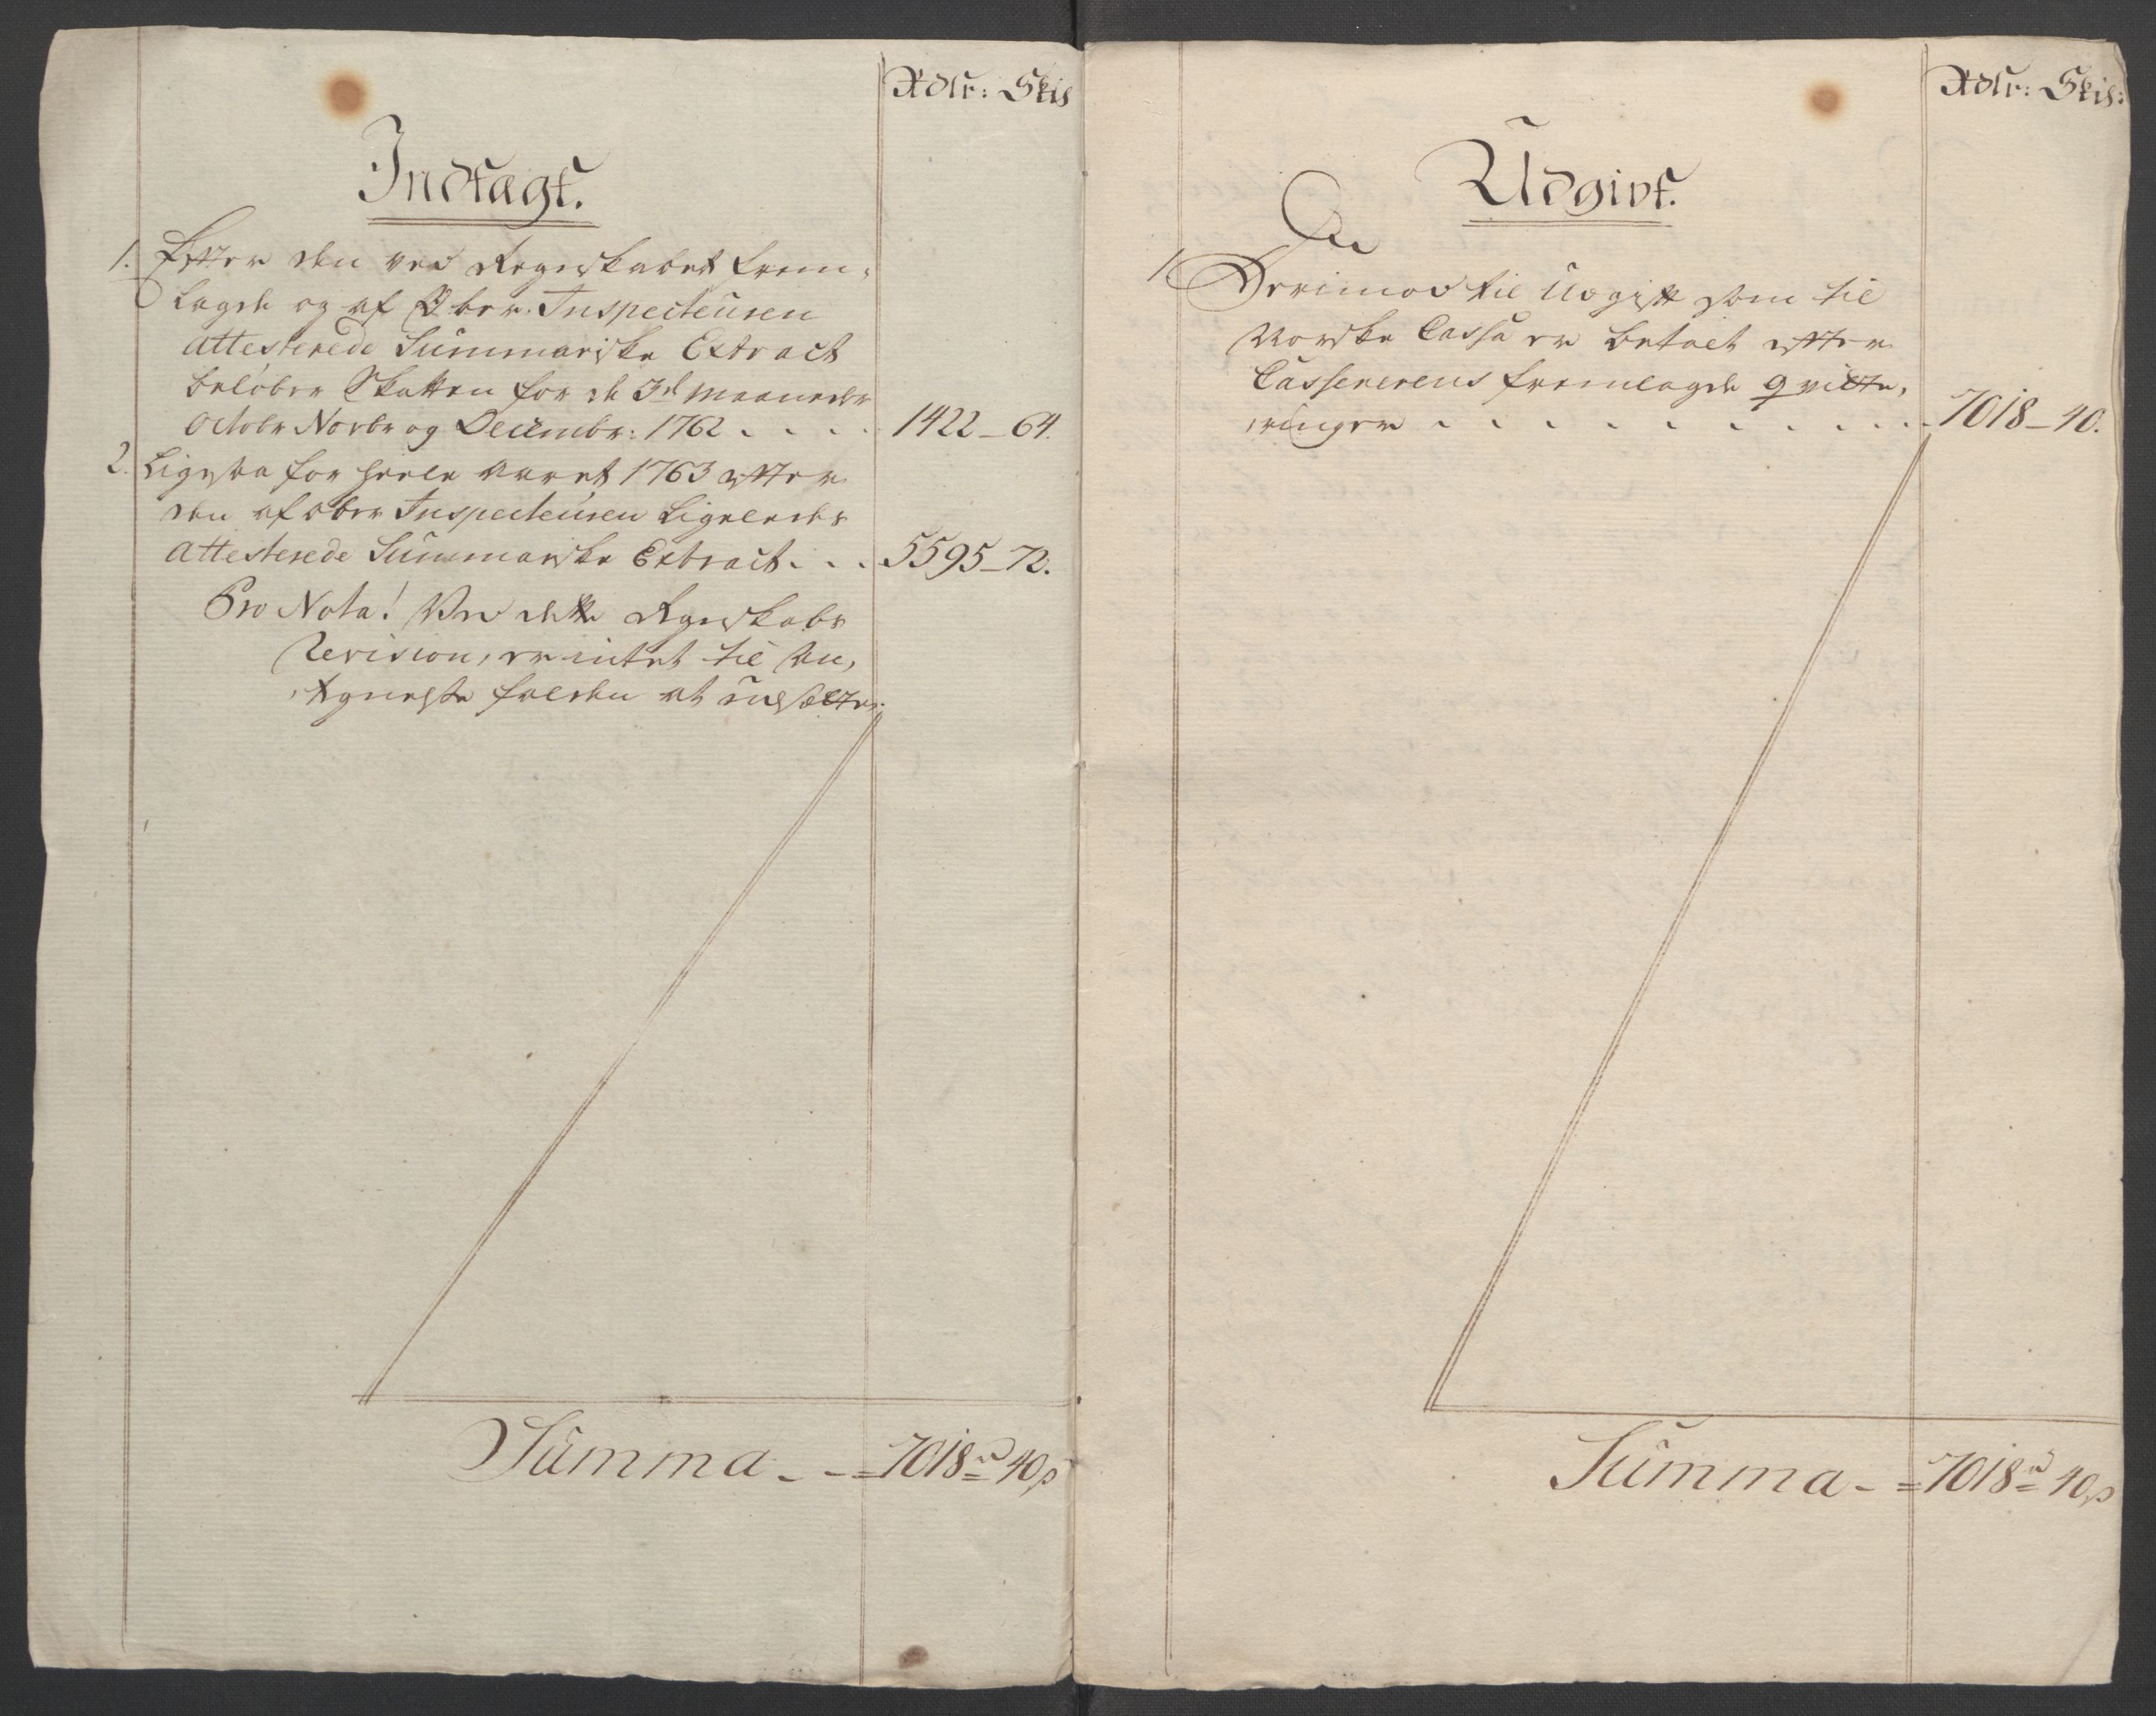 Rdlr: Skis
Indtægt.
1. Efter den ved Regnskabet frem-
lagde og af Ober-Inspecteuren
attesterede Summariske Extract
beløber Skatten for de 3de Maaneder
Octobr Novbr og Decembr: 1762 . . . . 1422 - 64.
2. Ligesaa for heele Aaret 1763 efter
den af Ober Inspecteuren Ligeledes
attesterede Summariske Extract . . . 5595 - 72.
Pro Nota! Ved dette Regnskabs
Revision, er intet til An-
tegnelse falden at udsætte.
Summa - - = 7018 rd = 40 s
Rdlr: Skis:
Udgivt.
1. Derimod til Udgift som til
Norske Cassa er betalt efter
Cassererens fremlagde qvitte-
ringer . . . . . . . . . . . 7018 - 40.
Summa - = 7018 rd = 40 s